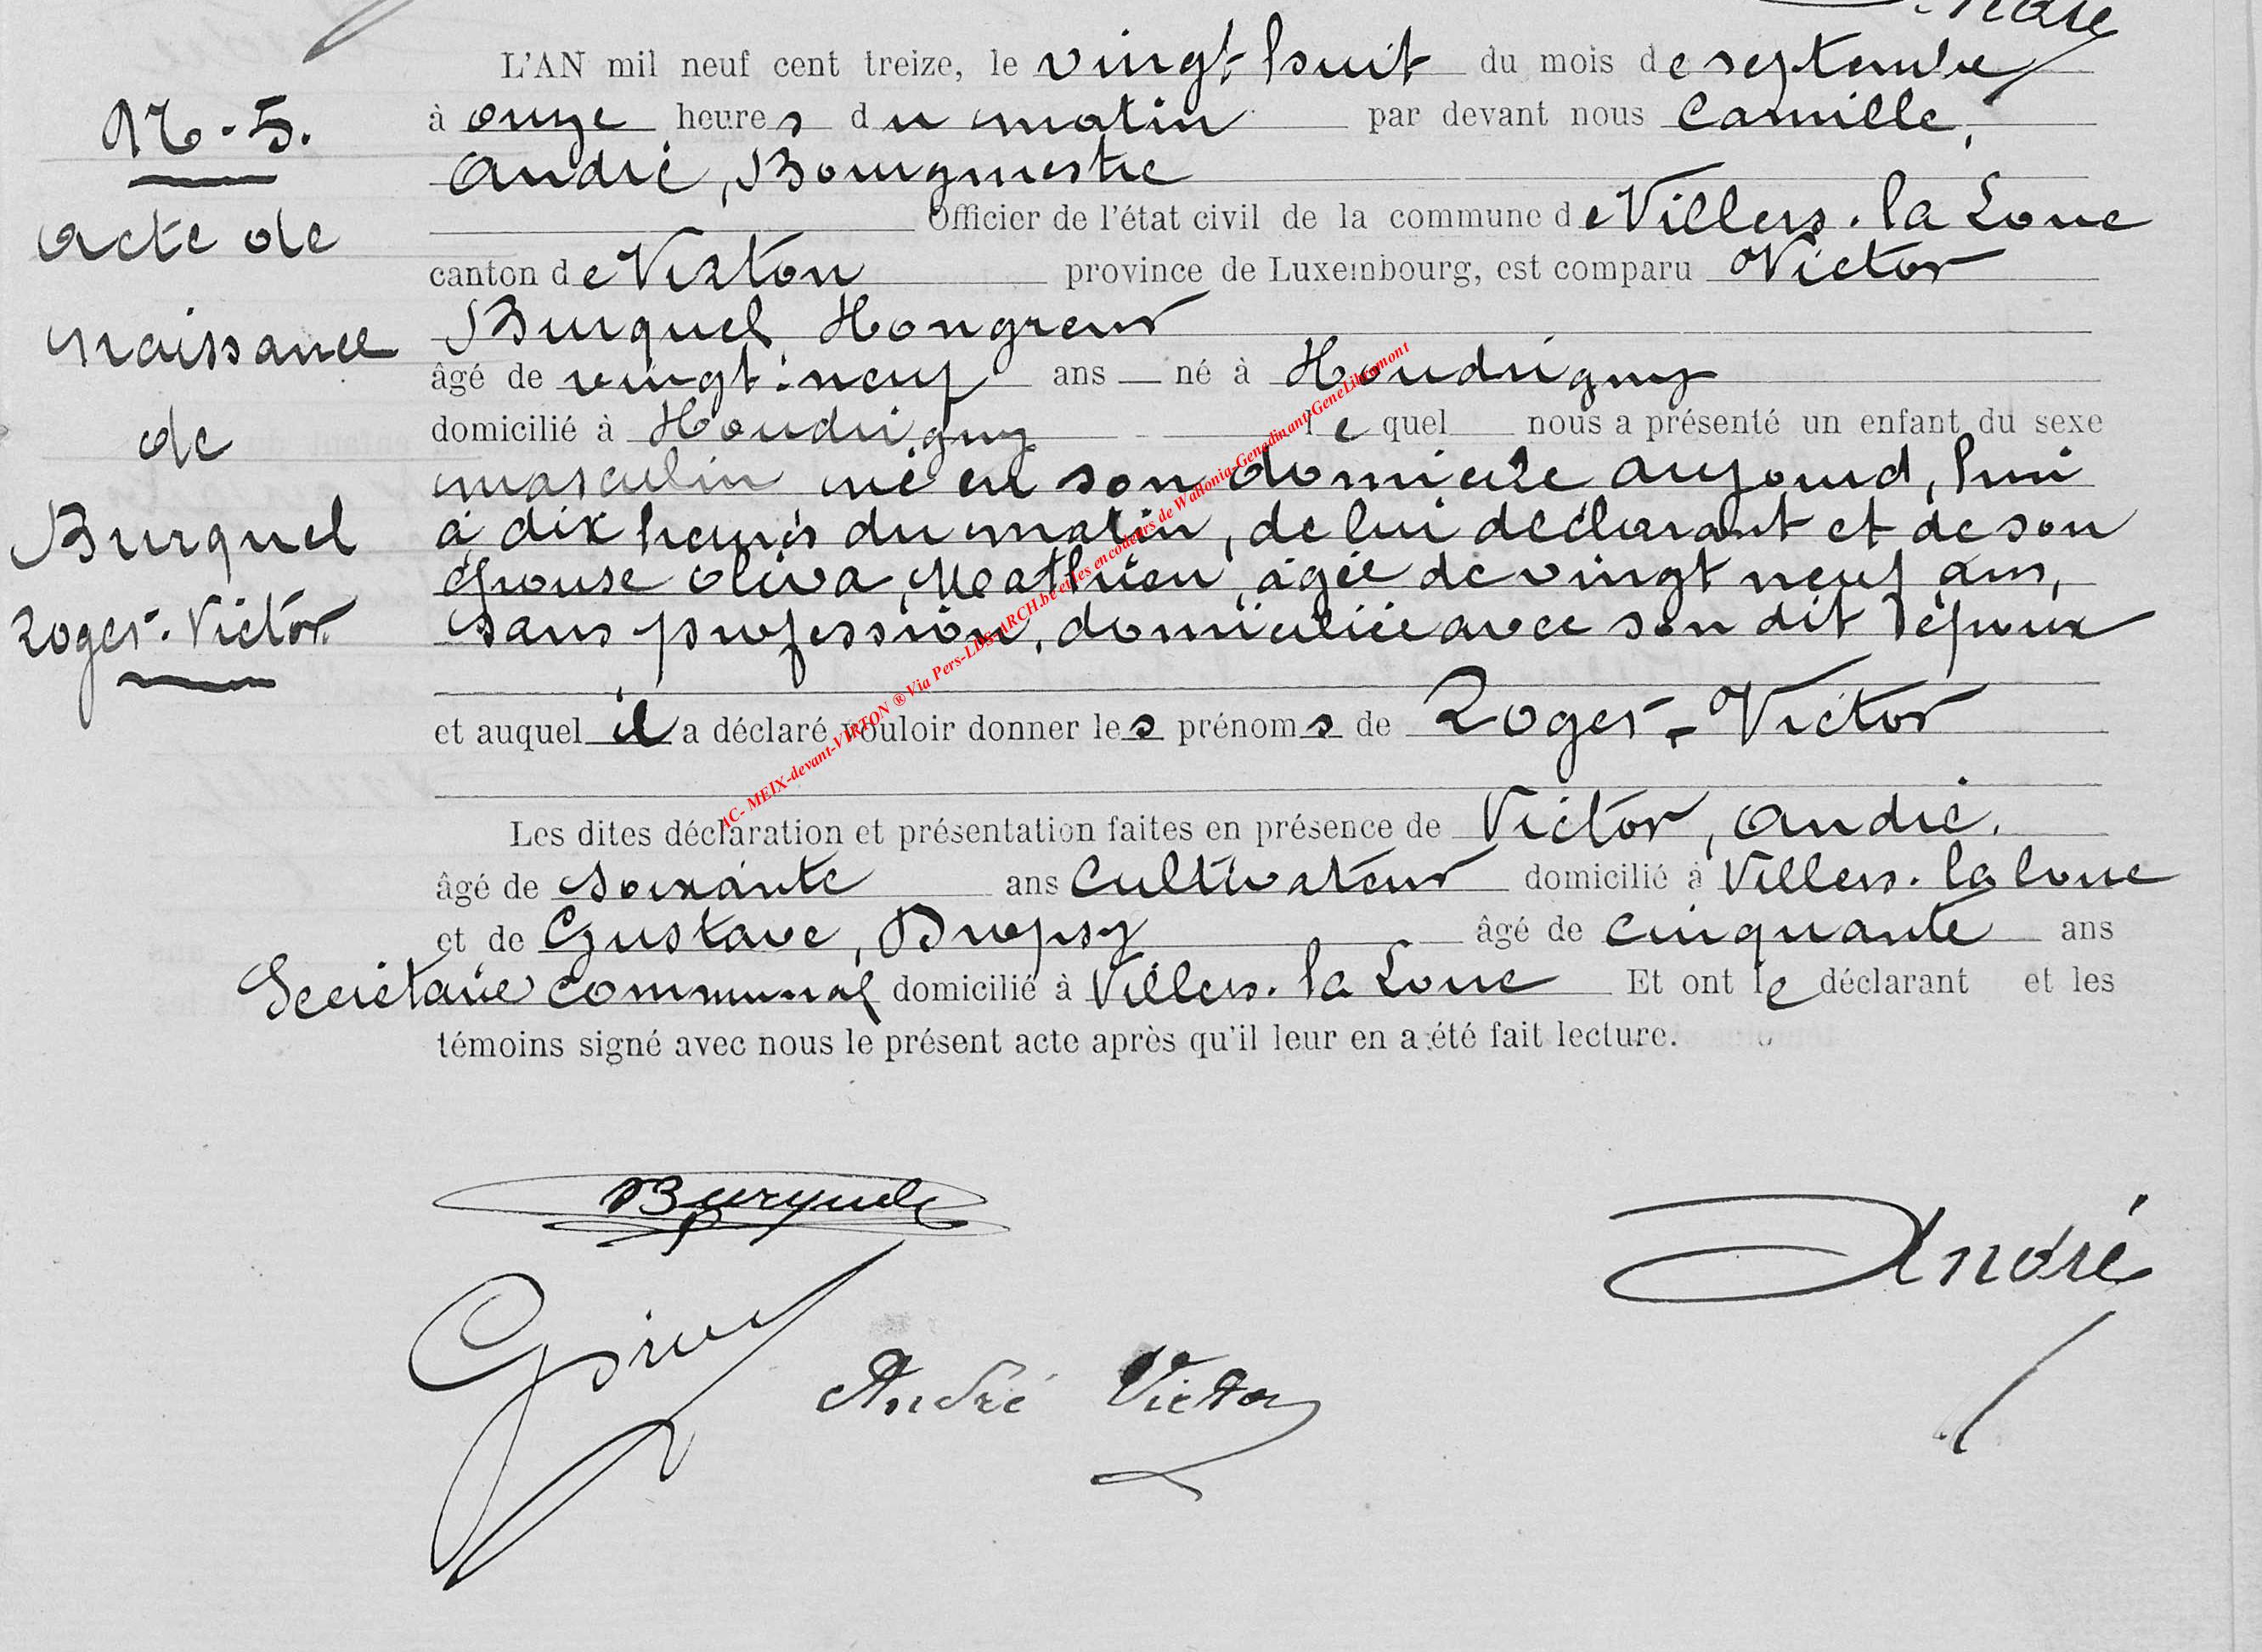 André
L'AN mil neuf cent treize, le vingt-huit du mois de septembre
à onze heures du matin par devant nous Camille,
André, Bourgmestre
Officier de l'état civil de la commune de Villers-la Loue
canton de Virton province de Luxembourg, est comparu Victor
Burquel Hongreur
âgé de vingt-neuf ans né à Houdrigny
domicilié à Houdrigny lequel nous a présenté un enfant du sexe
masculin né en son domicile aujourd,hui
à dix heures du matin, de lui déclarant et de son
épouse Oliva, Mathieu, âgée de vingt neuf ans,
sans profession, domiciliée avec son dit époux
et auquel il a déclaré vouloir donner les prénoms de Roger-Victor
Les dites déclaration et présentation faites en présence de Victor, André.
âgé de soixante ans Cultivateur domicilié à Villers-la loue
et de Gustave, Dropsy âgé de cinquante ans
Secrétaire communal domicilié à Villers-la Loue Et ont le déclarant et les
témoins signé avec nous le présent acte après qu'il leur en a été fait lecture.
N-5.
Acte de
naissance
de
Burquel
Roger-Victor.
AC- MEIX-devant-VIRTON ® Via Pers-LDS-ARCH.be et les encodeurs de Wallonia-Genedinant-GeneLibramont
Burquel
André
André Victor